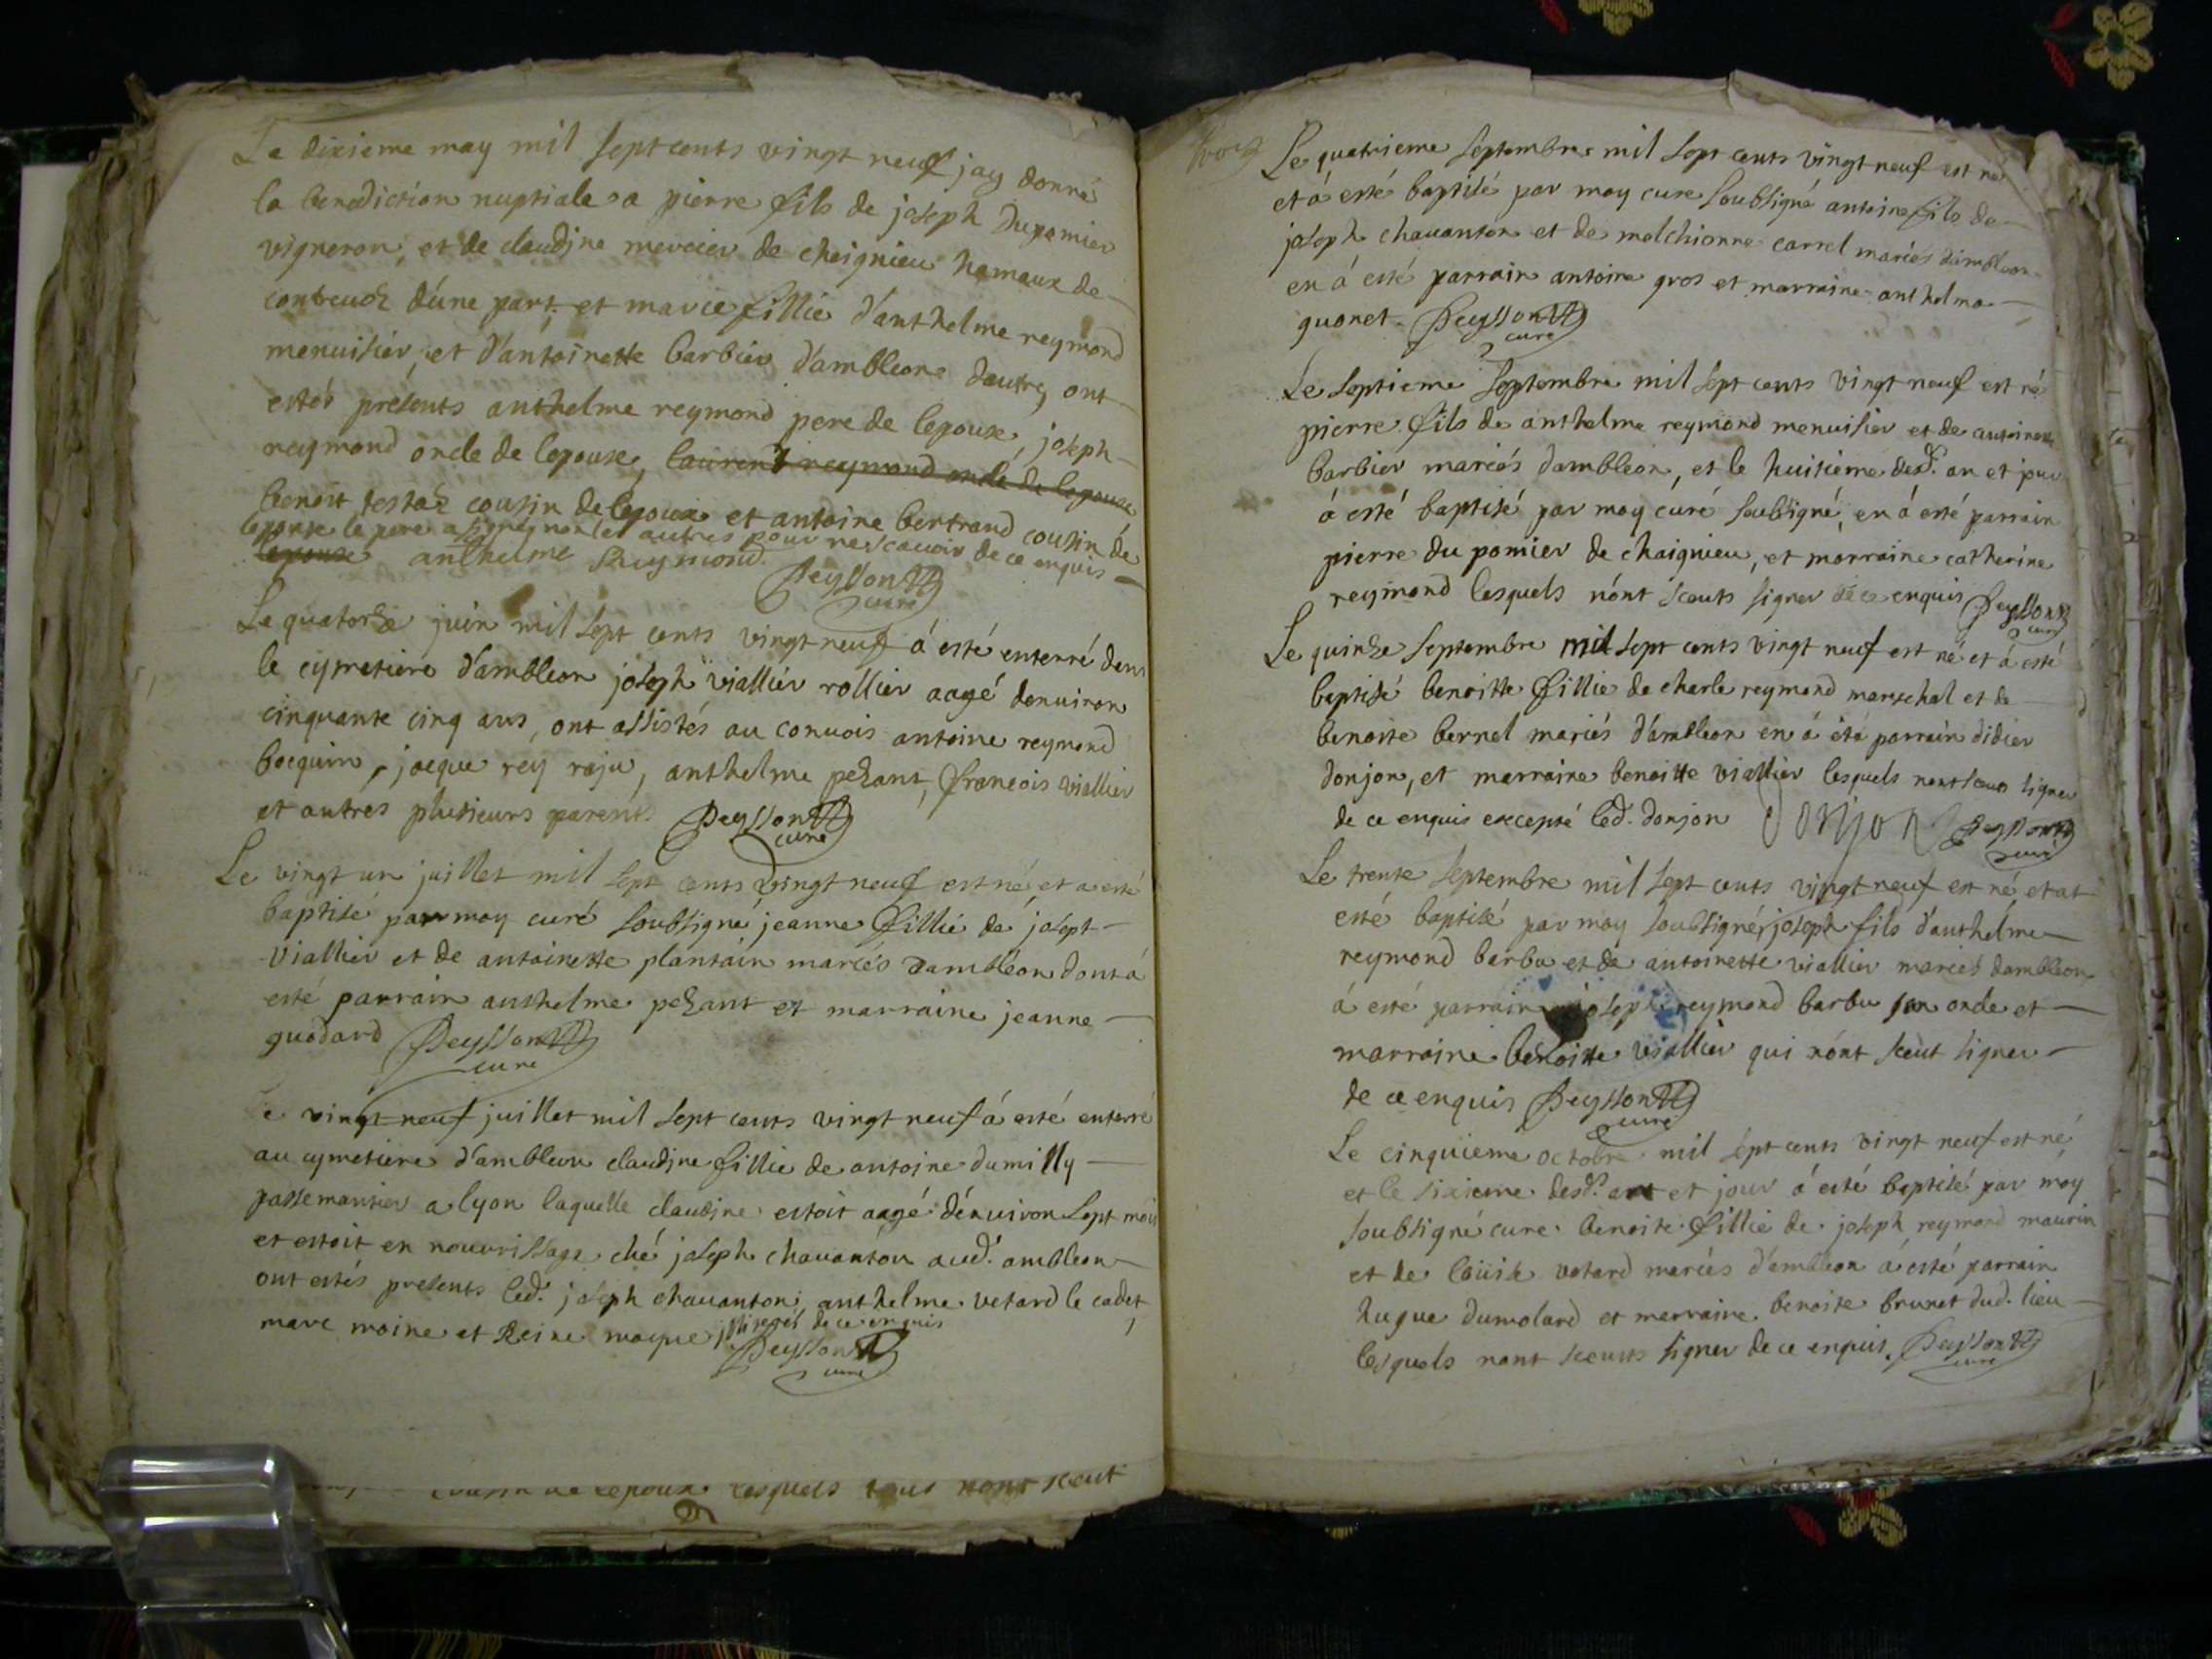 Le dixieme may mil sept cents vingt neuf jay donné
la benediction nuptiale a pierre fils de joseph Dupomier
vigneron, et de claudine mercier de cheignieu hameaux de
contreuoz d'une part, et marie fillie d'anthelme reymond
menuisier, et d'antoinette barbier d'ambleon dautre, ont
estés presents anthelme reymond pere de lepouse, joseph
reymond oncle de lepouse, laurent reymond oncle de lepouse
benoit testaz cousin de lepoux et antoine bertrand cousin de
lepouse le pere a signé non les autres pour ne scauoir de ce enquis
lepouse anthelme Reymond.
Peysson
curé
Le quatorze juin mil sept cents vingt neuf á esté enterré dans
le cymetiere d'ambleon joseph viallier rollier aagé denuiron
cinquante cinq ans, ont assistés au conuois antoine reymond
bocquin, jacque rey raju, anthelme pezant, francois viallier
et autres plusieurs parents Peysson
curé
Le vingt un juillet mil sept cents vingt neuf est né et a esté
baptisé par moy curé soubsigné jeanne fillie de josept
viallier et de antoinette plantain mariés dambleon dont á
esté parrain anthelme pezant et marraine jeanne
guodard Peysson
curé
Le vingt neuf juillet mil sept cents vingt neuf á esté enterré
au cymetiere d'ambleon claudine fillie de antoine dumilly
passemantier a lyon laquelle claudine estoit aagé dénuiron sept mois
et estoit en nourrissage ché joseph chauanton aud. ambleon
ont estés presents led. joseph chauanton, anthelme vetard le cadet,
marc moine et Reine de ce enquis
Peysson
curé
cousin de lepoux lesquels tous nont sceut
Le quatrieme septembre mil sept cents vingt neuf est né
et á esté baptisé par moy cure soubsigné antoine fils de
joseph chauanton et de melchionne carrel mariés dambleon
en á esté parrain antoine gros et marraine anthelma
guonet. Peysson
curé
Le septieme septembre mil sept cents vingt neuf est né
pierre fils de anthelme reymond menuisier et de antoinette
barbier mariés dambleon, et le huitieme desd. an et jour
á esté baptisé par moy curé soubsigné, en á esté parrain
pierre du pomier de chaignieu, et marraine catherine
reymond lesquels nónt sceuts signer de ce enquis Peysson
curé
Le quinze septembre mil sept cents vingt neuf est né et á esté
baptisé benoitte fillie de charle reymond mareschal et de
benoite bernel mariés d'ambleon en á été parrain didier
donjon, et marraine benoitte viallier lesquels nont sceus signer
de ce enquis excepté led. donjon Donjon Peysson
curé
Le trente septembre mil sept cents vingt neuf est né et at
esté baptisé par moy soubsigné joseph fils d'anthelme
reymond barbu et de antoinette viallier mariés dambleon
á esté parrain joseph reymond barbu son oncle et
marraine benoitte viallier qui nónt sceut signer
de ce enquis Peysson
curé
Le cinquieme octobre mil sept cents vingt neuf est né
et le sixieme desd. an et jour á esté baptisé par moy
soubsigné cure benoite fillie de joseph reymond maurin
et de loüise vetard mariés d'ambleon á esté parrain
hugue dumolard et marraine benoite brunet dud. lieu
lesquels nont sceuts signer de ce enquis. Peysson
curé